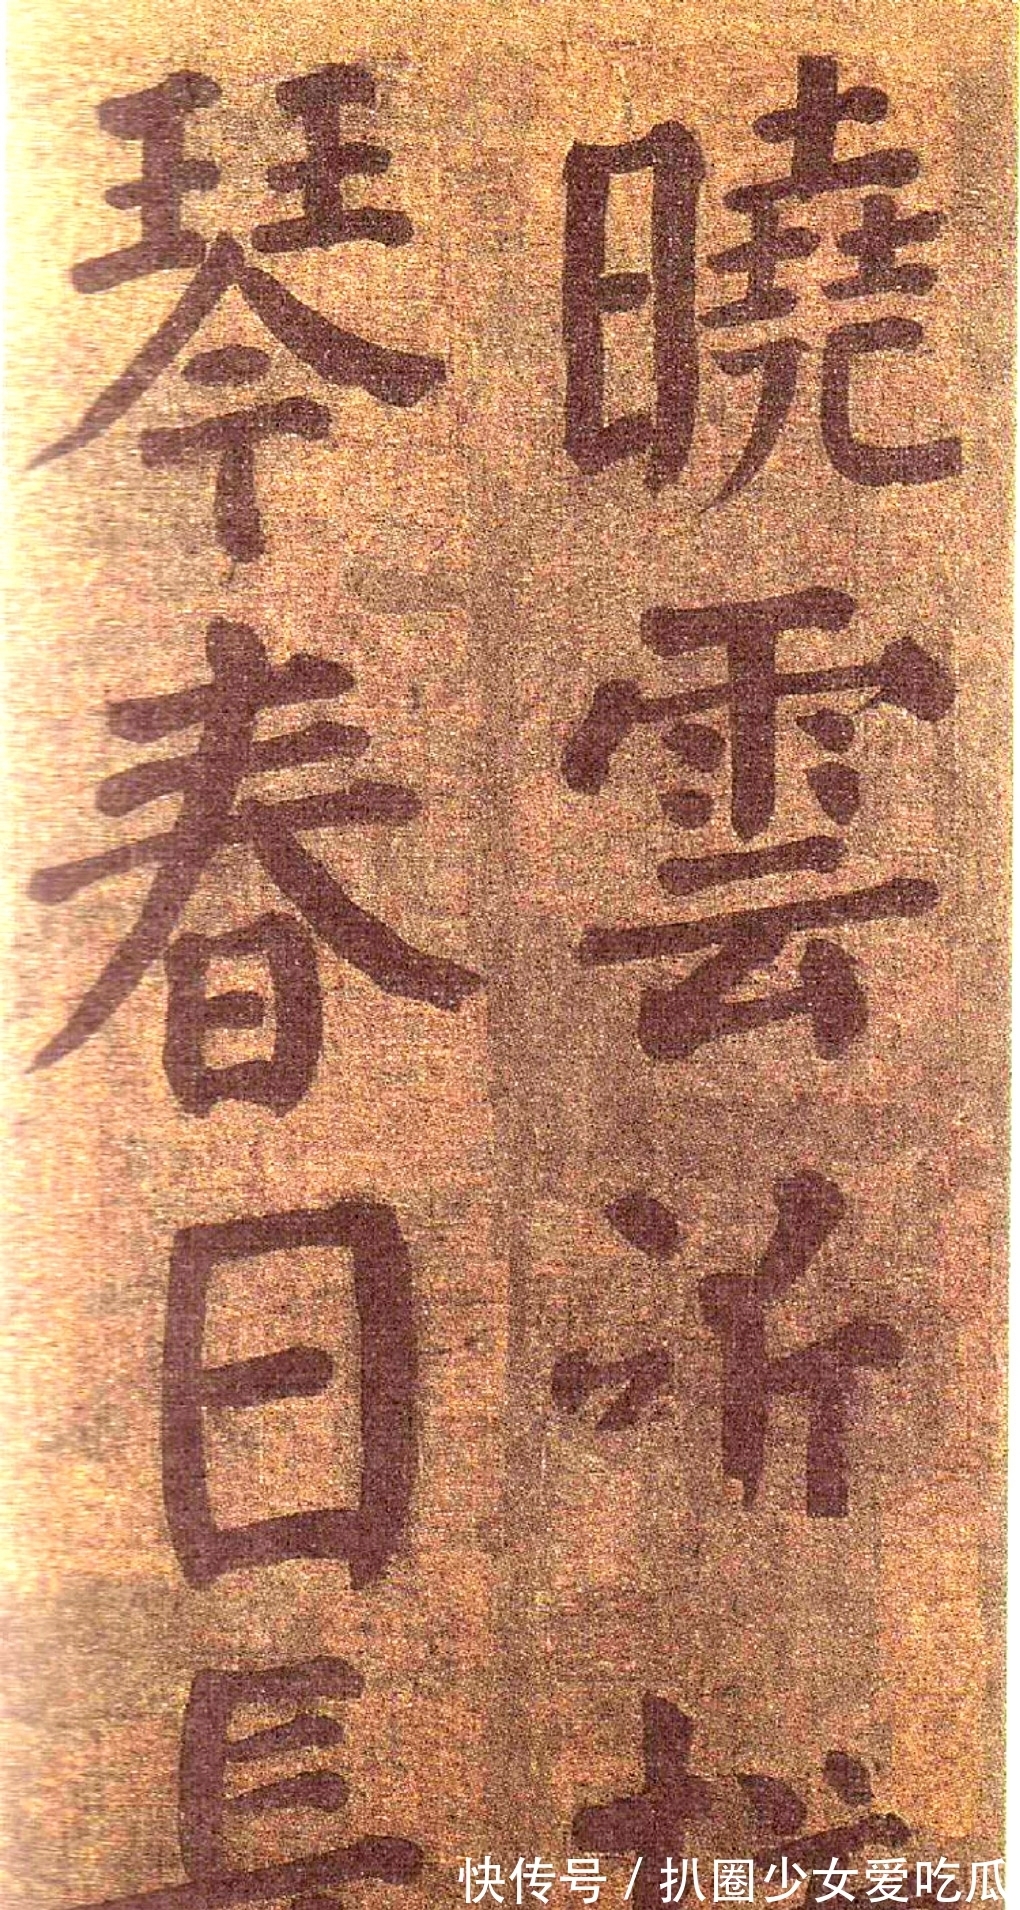 曉雲
琴春日長
快传号 / 扒圈少女爱吃瓜